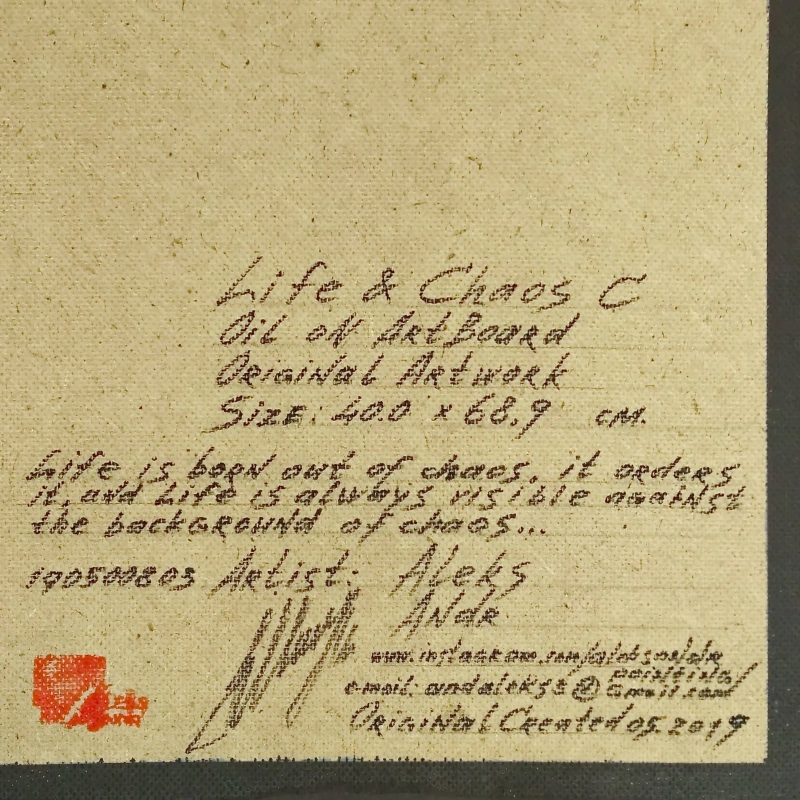 Life & Chaos C
Oil on ArtBoard
Original Artwork
Size: 40.0 x 68.9 cm.
Life is born out of chaos, it orders
it, and Life is always visible against
the background of chaos...
190500803 Artist: Aleks
Andr
painting/
e-mail: andaleks8@Gmail.com
Original Created 05.2019